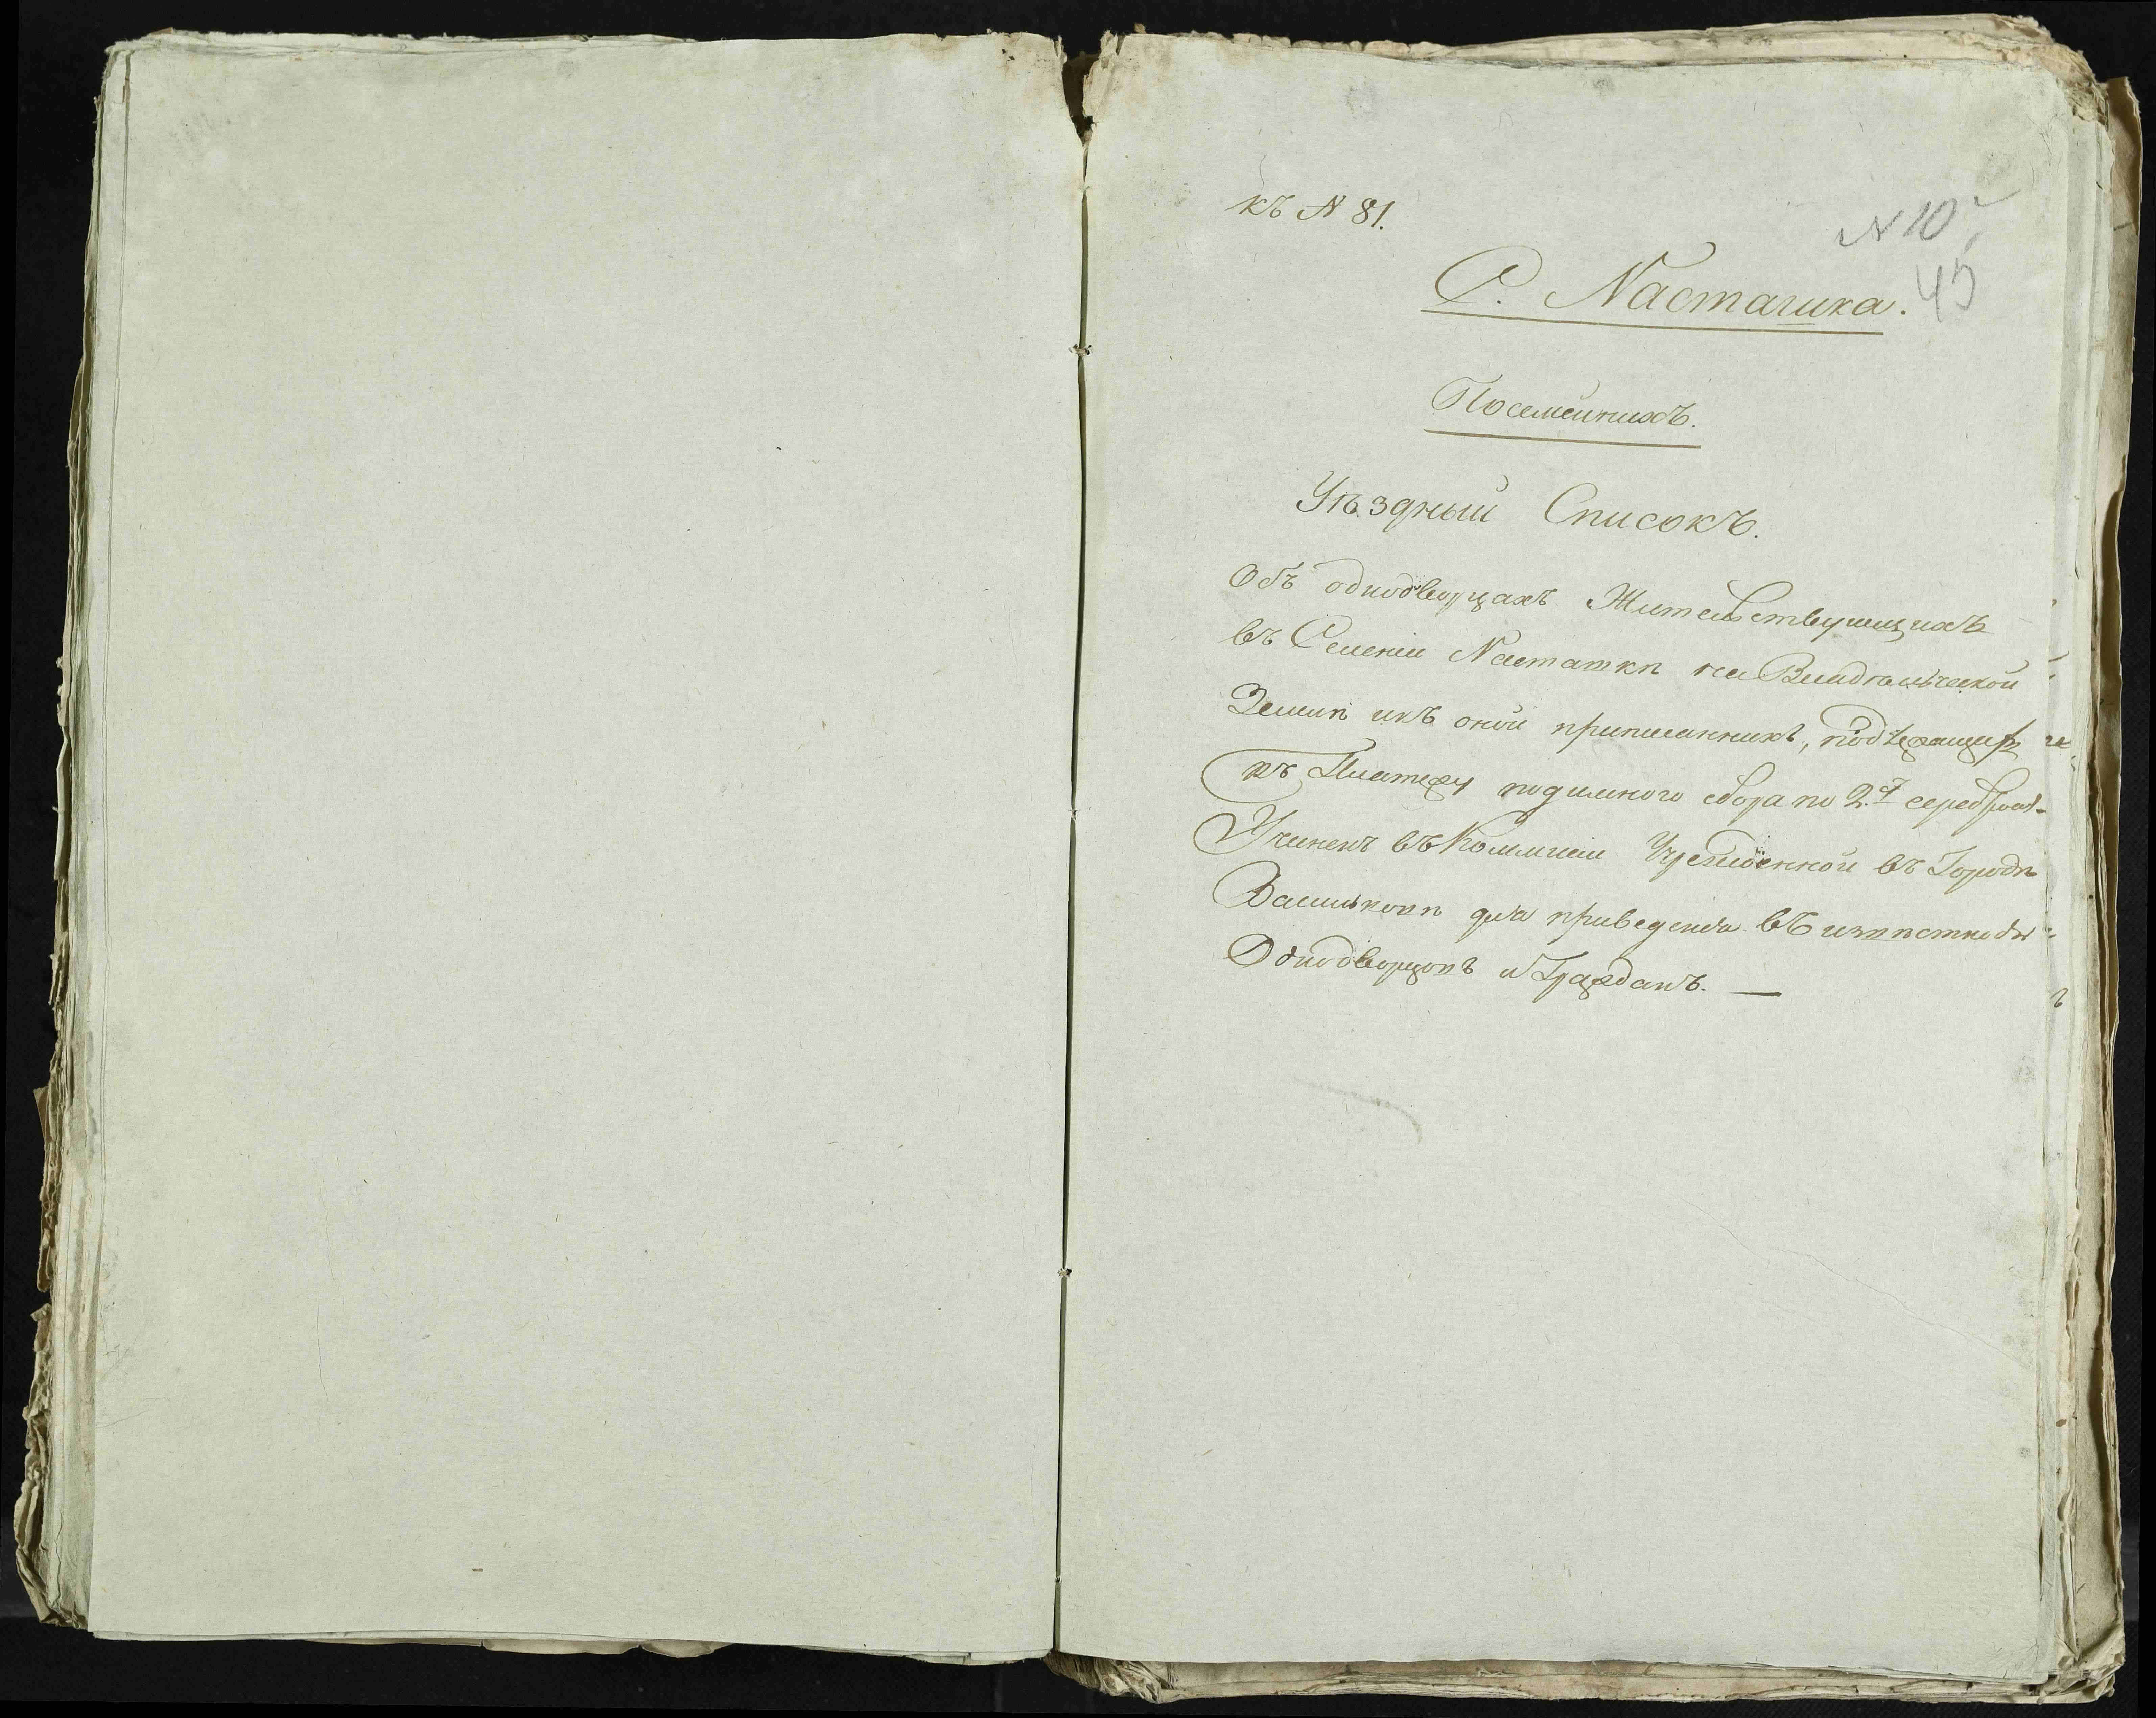 къ N 81.
N 10
45
С. Насташка.
Посемейный.
Уѣздный Списокъ.
Объ однодворцахъ Жительствующихъ
въ Селеніи Насташкѣ на Владельческой
Земли икъ оной приписанныхъ, подлежащихъ
къ Платежу подымного сбора по 2. серебромъ
Учиненъ въ Коммисіи Учрежденной въ Городѣ
Васильковѣ для приведенія въ извѣстность
Однодворцовъ и Гражданъ. —